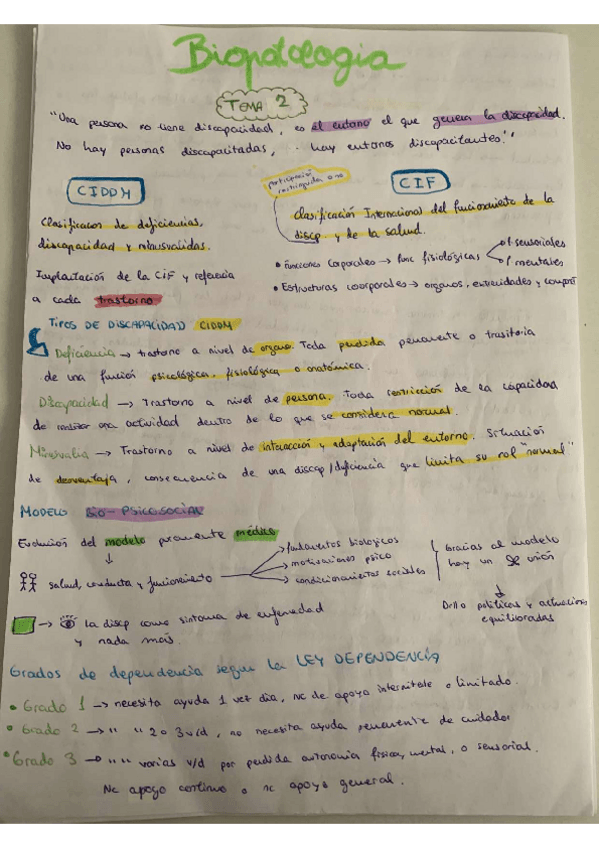 Biopatologia
TEMA 2
"Una persona no tiene discapacidad, es el entorno el que genera la discapacidad.
No hay personas discapacitadas, hay entornos discapacitantes."
CIDDM
Clasificacos de deficiencias,
discapacidad y minusvalidas.
Implantación de la CIF y referencia
a cada trastorno
participación
restringida o no
CIF
Clasificación Internacional del funcionamiento de la
discp. y de la salud.
• Funciones corporales → func fisiológicas
f. sensoriales
f. mentales
• Estructuras coorporales → organos, extremidades y compont
TIPOS DE DISCAPACIDAD CIDDM
Deficiencia → trastorno a nivel de organo. Toda perdida permanente o trasitoria
de una función psicológica, fisiológica o anatómica.
Discapacidad → Trastorno a nivel de persona. Toda restricción de la capacidad
de realizar una actividad dentro de lo que se considera normal.
Minusvalia → Trastorno a nivel de interacción y adaptación del entorno. Situación
de desventaja, consecuencia de una discap/deficiencia que limita su rol "normal"
MODELO BIO-PSICOSOCIAL
Evolución del modelo puramente médico
salud, conducta y funcionamiento
fundamentos biologicos
motivaciones psico
condicionamientos sociales
Gracias al modelo
hay un unión
Drllo politicas y actuaciones
equilibradas
→ la discp como sintoma de enfermedad
y nada más.
Grados de dependencia segun la LEY DEPENDENCIA
• Grado 1 → necesita ayuda 1 vez dia, nc de apoyo intermitete o limitado.
• Grado 2 → " " 2 o 3 v/d, no necesita ayuda permanente de cuidador
• Grado 3 → " " varias v/d por perdida autonomia fisica, mental, o sensorial.
Nc apoyo continuo o nc apoyo general.